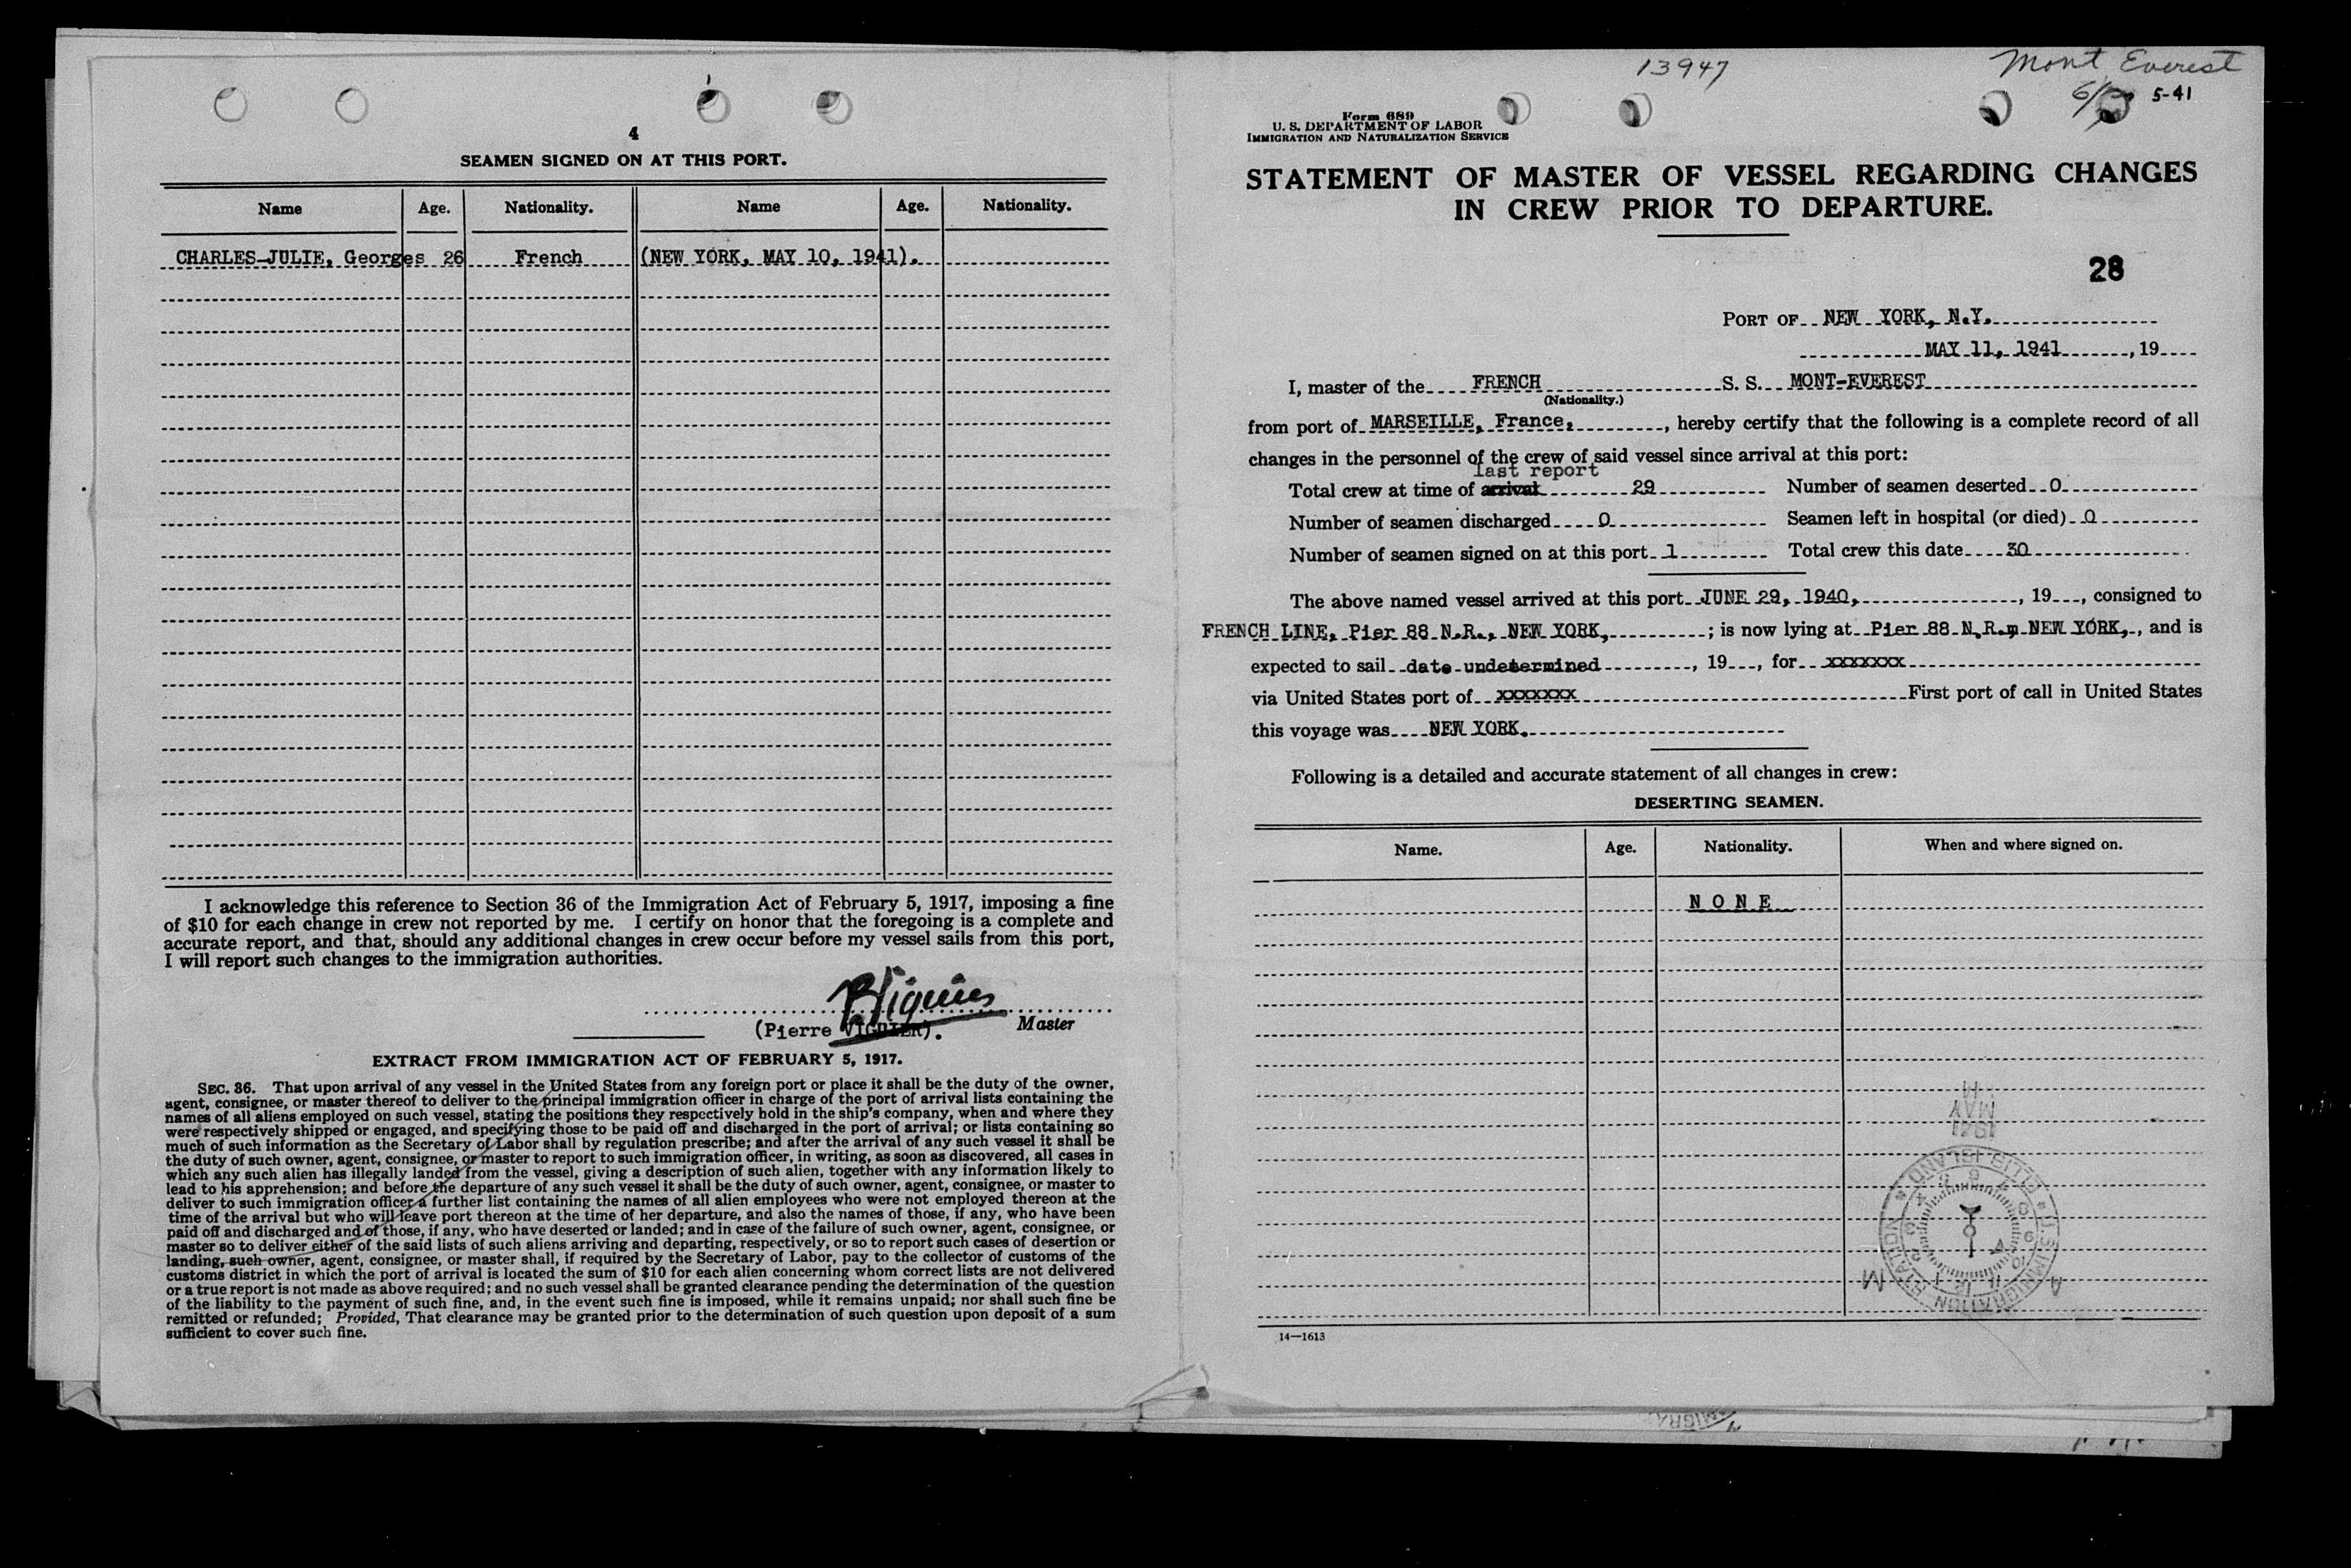 4
SEAMEN SIGNED ON AT THIS PORT.
Name Age. Nationality. Name Age. Nationality.
CHARLES-JULIE, Georges 26 French (NEW YORK, MAY 10, 1941).
I acknowledge this reference to Section 36 of the Immigration Act of February 5, 1917, imposing a fine
of $10 for each change in crew not reported by me. I certify on honor that the foregoing is a complete and
accurate report, and that, should any additional changes in crew occur before my vessel sails from this port,
I will report such changes to the immigration authorities.
PViguier
(Pierre VIGUIER). Master
EXTRACT FROM IMMIGRATION ACT OF FEBRUARY 5, 1917.
SEC. 36. That upon arrival of any vessel in the United States from any foreign port or place it shall be the duty of the owner,
agent, consignee, or master thereof to deliver to the principal immigration officer in charge of the port of arrival lists containing the
names of all aliens employed on such vessel, stating the positions they respectively hold in the ship's company, when and where they
were respectively shipped or engaged, and specifying those to be paid off and discharged in the port of arrival; or lists containing so
much of such information as the Secretary of Labor shall by regulation prescribe; and after the arrival of any such vessel it shall be
the duty of such owner, agent, consignee, or master to report to such immigration officer, in writing, as soon as discovered, all cases in
which any such alien has illegally landed from the vessel, giving a description of such alien, together with any information likely to
lead to his apprehension; and before the departure of any such vessel it shall be the duty of such owner, agent, consignee, or master to
deliver to such immigration officer a further list containing the names of all alien employees who were not employed thereon at the
time of the arrival but who will leave port thereon at the time of her departure, and also the names of those, if any, who have been
paid off and discharged and of those, if any, who have deserted or landed; and in case of the failure of such owner, agent, consignee, or
master so to deliver either of the said lists of such aliens arriving and departing, respectively, or so to report such cases of desertion or
landing, such owner, agent, consignee, or master shall, if required by the Secretary of Labor, pay to the collector of customs of the
customs district in which the port of arrival is located the sum of $10 for each alien concerning whom correct lists are not delivered
or a true report is not made as above required; and no such vessel shall be granted clearance pending the determination of the question
of the liability to the payment of such fine, and, in the event such fine is imposed, while it remains unpaid; nor shall such fine be
remitted or refunded; Provided, That clearance may be granted prior to the determination of such question upon deposit of a sum
sufficient to cover such fine.
13947
Mont Everest
5-41
Form 689
U. S. DEPARTMENT OF LABOR
IMMIGRATION AND NATURALIZATION SERVICE
STATEMENT OF MASTER OF VESSEL REGARDING CHANGES
IN CREW PRIOR TO DEPARTURE.
28
PORT OF NEW YORK, N.Y.
MAY 11, 1941, 19
I, master of the FRENCH S. S. MONT-EVEREST
(Nationality.)
from port of MARSEILLE, France, , hereby certify that the following is a complete record of all
changes in the personnel of the crew of said vessel since arrival at this port:
last report
Total crew at time of arrival 29 Number of seamen deserted 0
Number of seamen discharged 0 Seamen left in hospital (or died) 0
Number of seamen signed on at this port 1 Total crew this date 30
The above named vessel arrived at this port JUNE 29, 1940, , 19 , consigned to
FRENCH LINE, Pier 88 N.R., NEW YORK, ; is now lying at Pier 88 N.R., NEW YORK, , and is
expected to sail date undetermined , 19 , for xxxxxxx
via United States port of xxxxxxx First port of call in United States
this voyage was NEW YORK.
Following is a detailed and accurate statement of all changes in crew:
DESERTING SEAMEN.
Name. Age. Nationality. When and where signed on.
NONE
1941
MAY
U.S. IMMIGRATION STATION * ELLIS ISLAND *
A M
14—1613